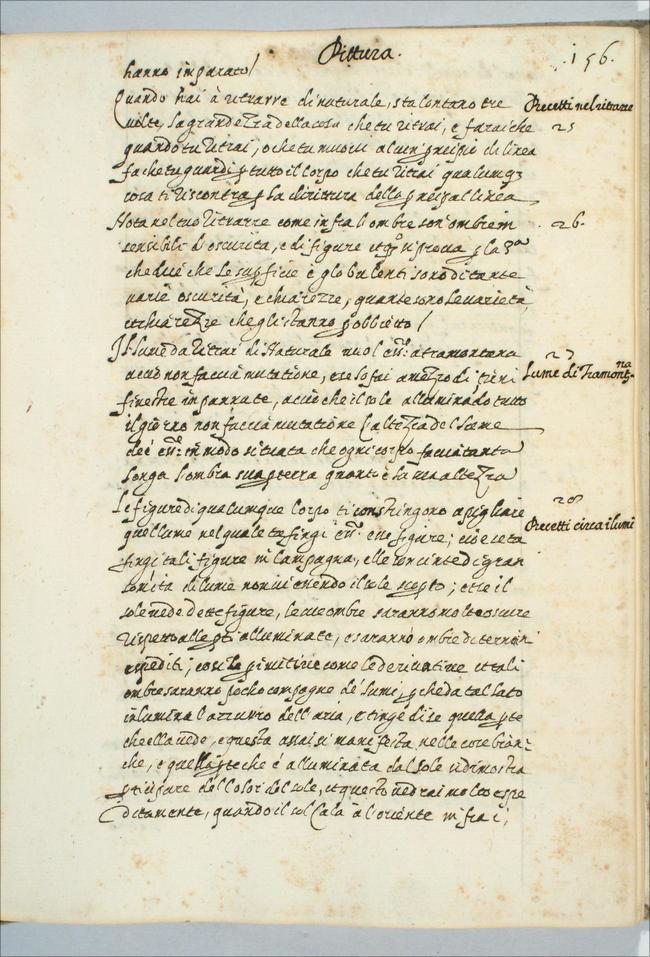 Pittura.
.156.
hanno imparato/
Quando hai à ritrarre di naturale, sta lontano tre
Precetti nel ritrarre
volte la grandezza della cosa che tu ritrai, e farai che
25
quando tu ritrai, o che tu muovi alcun principio di linea
fa che tu guardi p tutto il corpo che tu ritrai qualunq3
cosa ti riscontra p la dirittura della principal linea
Nota nel tuo ritrarre come infra l'ombre son ombre in
.26.
sensibili d'oscurità, e di figure et qo si prova p la 3a
che dice che le supficie globulenti sono di tante
varie oscurità, e chiarezze, quante sono le varietà
et chiarezze che gli stanno p obbietto/
Il lume da ritrar di Naturale vuol ess: a tramontana
27
acciò non faccia mutatione, e se lo fai a mezzo dì tieni
Lume di Tramontna
finestre impannate, acciò che il sole alluminado tutto
il giorno non faccia mutatione l'altezza del lume
dee ess: in modo situata che ogni corpo faccia tanto
longa l'ombra sua p terra quanto è la sua altezza
Le figure di qualunque corpo ti constringono a pigliare
28
quel lume nel quale tu fingi ess. esse figure; cioè se tu
Precetti circa i lumi
fingi tali figure in campagna, elle son cinte di gran
somità di lume non vi essendo il sole scopto; et se il
sole vede dette figure, le sue ombre saranno molto oscure
rispetto alle pti alluminate, e saranno ombre di termini
espediti; così le primitive come le derivative et tali
ombre saranno pocho compagne de' lumi, p che da tal lato
inlumina l'azzurro dell'aria, e tinge di se quella pte
che ella vede, e questa assai si manifesta nelle cose bian-
che, e quella pte che è alluminata dal sole si dimostra
pticipare del color del sole, et questo vedrai molto espe
ditamente, quando il sol cala a l'oriente infra i;